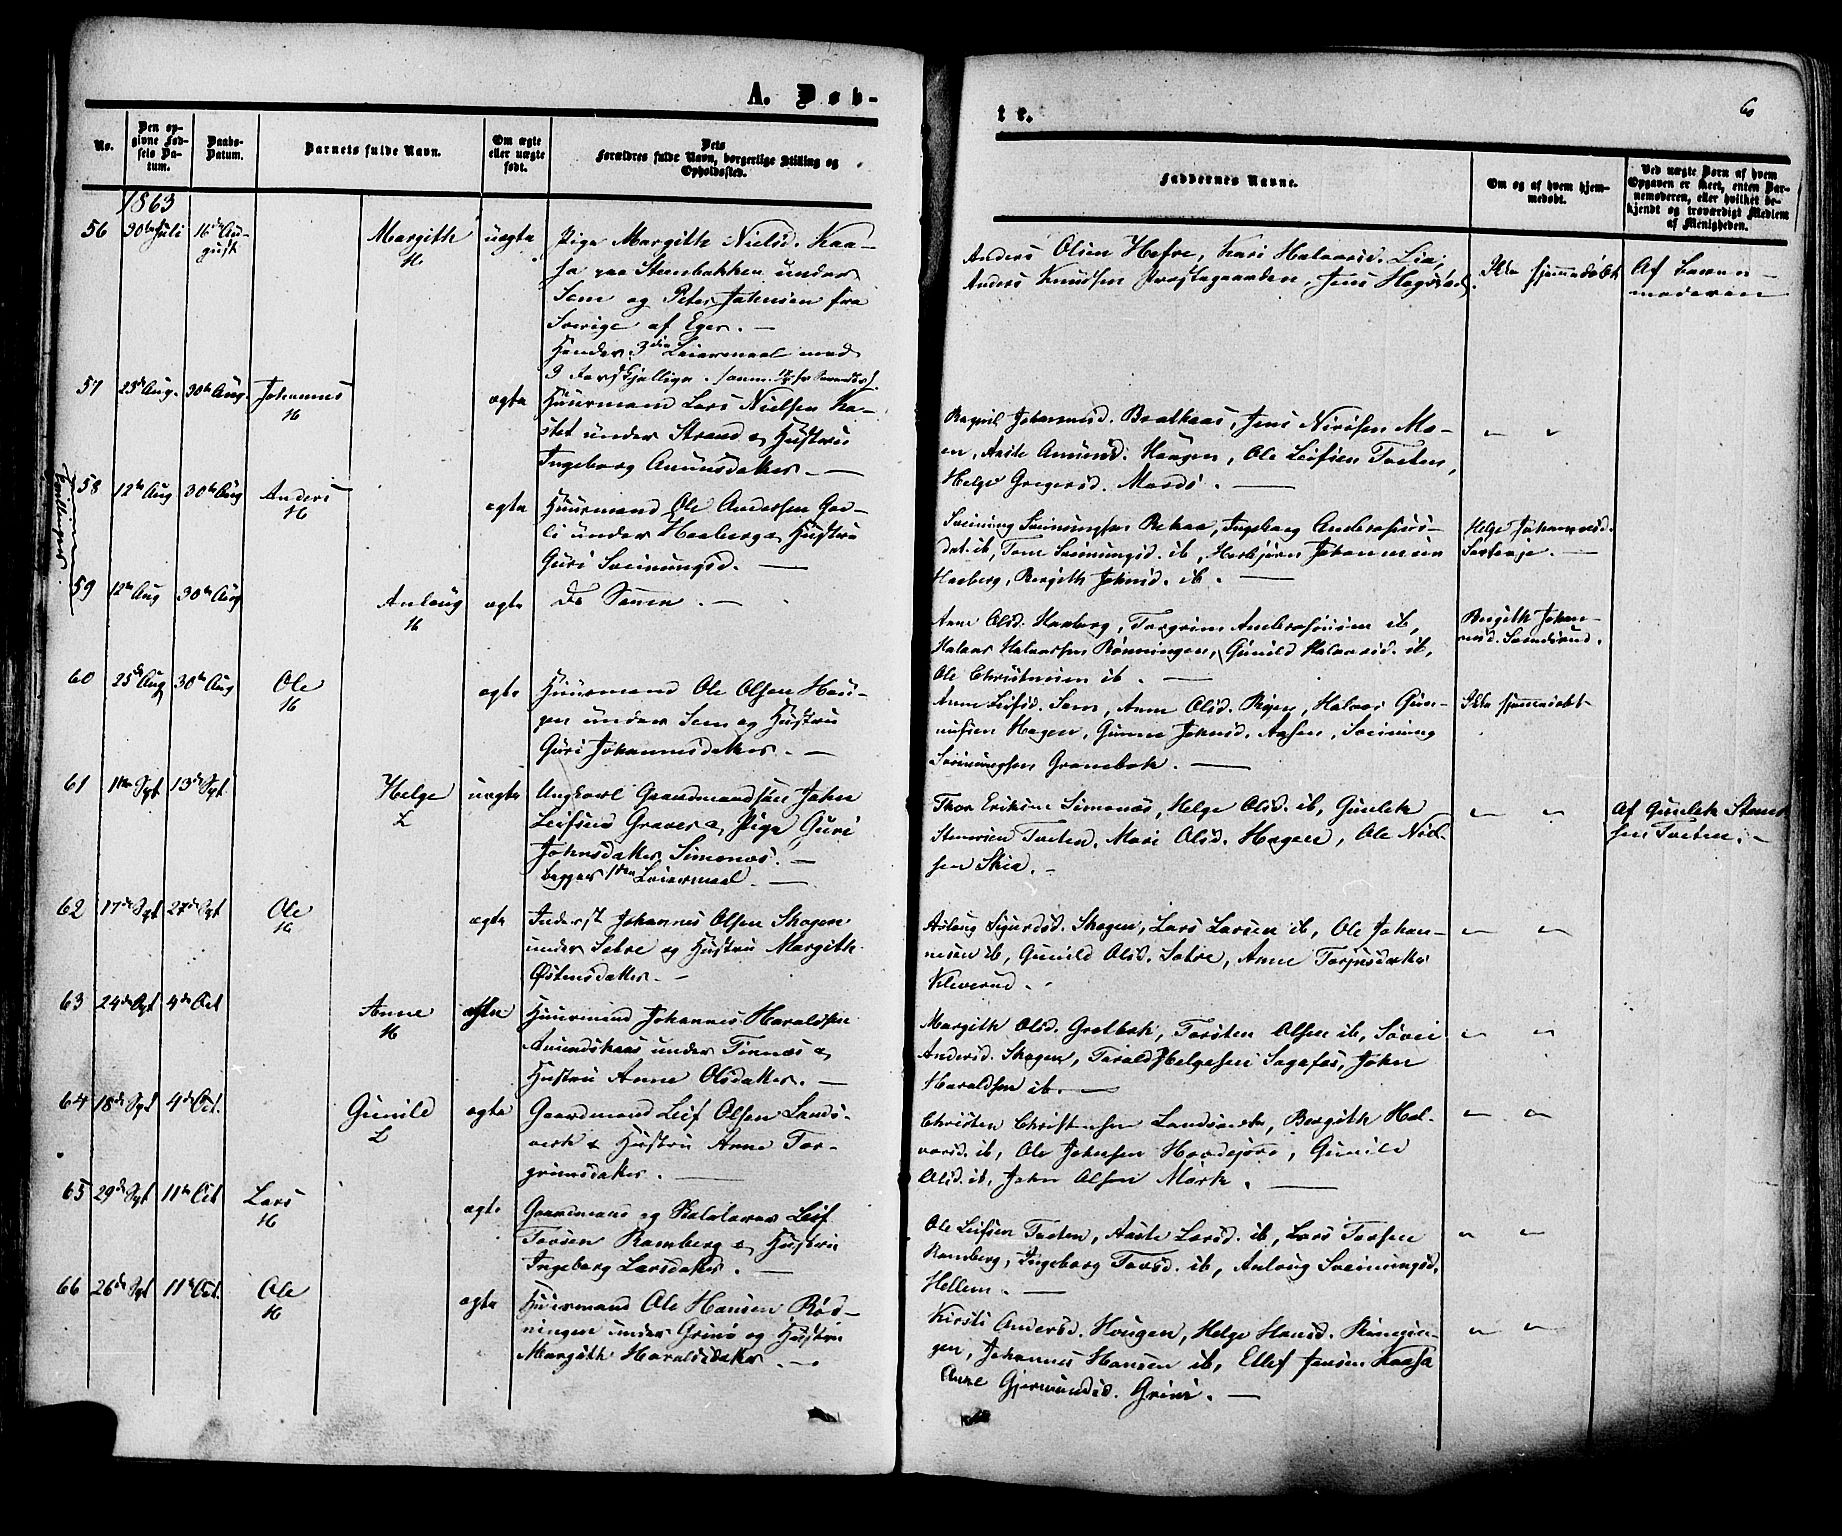 A. Døb-
te.
6
No.
Den op-
givne Fød-
sels Da-
tum.
Daabs-
Datum.
Barnets fulde Navn.
Om ægte
eller uægte
født.
Dets
Forældres fulde Navn, borgerlige Stilling og
Opholdssted.
Faddernes Navne.
Om og af hvem hjem-
medøbt.
Ved uægte Børn af hvem
Opgaven er skeet, enten Bar-
nemoderen, eller hvilket be-
kjendt og troværdigt Medlem
af Menigheden.
1863
56 30te Juli 16de Au-
gust
Margith
H.
uægte
Pige Margith Nielsd. Kaa-
sa paa Steenbakken under
Sem og Peter Johnsen fra
Sverige af Eger. —
Hendes 3die Leiermaal med
3 Forskjellige.
Anders Olsen Hefre, Kari Halvorsd. Lia,
Anders Knudsen Prestegaarden, Jens
Ikke hjemmedøbt
Af Barne-
moderen
57 25de Aug. 30te Aug. Johannes
H
ægte
Huusmand Lars Nielsen Ka-
stet under Strand & Hustru
Ingeborg Amundsdatter. —
Johannesd. Braatkaas, Jens Nirisen Mo-
en, Aaste Amundsd. Haugen, Ole Leifsen Tveten,
Helge Gregersd. Moses. —
" "
Tvillinger
58 12te Aug 30te Aug Anders
H
ægte
Huusmand Ole Andersen Gaa-
li under Haaberg & Hustru
Guri Sveinungsd. —
Sveinung Sveinungsen Bekaa, Ingeborg Ambrosius-
dat. ib, Tone Sveinungsd. ib, Herbjørn Johannesen
Haaberg, Bergith Johnsd. ib. —
Helge Johannesd.
59 12te Aug 30te Aug
Anlaug
H
ægte
Do Samme. —
Anne Olsd. Haaberg, Torgrim Ambrosiusen ib,
Halvor Halvorsen Rønningen, Gunild Halvorsd. ib,
Ole Christensen ib. —
Bergith Johan-
nesd.
60 25de Aug 30te Aug Ole
H
ægte
Huusmand Ole Olsen Hau-
gen under Sem og Hustru
Guri Johannesdatter. —
Anne Leifsd. Sem, Anne Olsd. Bøen, Halvor Gun-
nufsen Hagen, Gunne Johnsd. Aasen, Sveinung
Sveinungsen Granebek. —
Ikke hjemmedøbt
61 1ste Spt 13de Spt
Helge
L
uægte
Ungkarl Gaardmandsøn John
Leifsen Graver & Pige Guri
Johnsdatter Simones. —
begges 1ste Leiermaal. —
Thor Eriksen Simones, Helge Olsd. ib, Gunlek
Stenersen Tveten, Mari Olsd. Hagen, Ole Niel-
sen Skia. —
" "
Af Gunlek Stener-
sen Tveten. —
62 17de Spt 27de Spt Ole
H
ægte
Inderst Johannes Olsen Skogen
under Setre og Hustru Margith
Østensdatter. —
Aslaug Sigurdsd. Skogen, Lars Larsen ib, Ole Johan-
nesen ib, Gunild Olsd. Setre, Anne Torjusdatter
Kleverud.
" "
63 24de Spt 4de Oct
Anne
H
ægte
Huusmand Johannes Haraldsen
Amundskaas under Tinnæs &
Hustru Anne Olsdatter. —
Margith Olsd. Grotbæk, Torsten Olsen ib, Søvei
Andersd. Skogen, Torald Helgesen Sagafos, John
Haraldsen ib. —
" "
64 18de Spt 4de Oct.
Gunild
L
ægte
Gaardmand Leif Olsen Lands-
verk & Hustru Anne Tor-
grimsdatter. —
Christen Christensen Landsverk, Bergith Hal-
vorsd. ib, Ole Johnsen Hovdejord, Gunild
Olsd. ib, John Olsen Mork. —
" "
65 29de Spt 11te Oct Lars
H
ægte
Gaardmand og Skolelærer Leif
Torsen Ramberg & Hustru
Ingeborg Larsdatter. —
Ole Leifsen Tveten, Aaste Larsd. ib, Lars Torsen
Ramberg, Ingeborg Torsd. ib, Anlaug Sveinungsd.
Hellem. —
" "
66 26de Spt 11te Oct. Ole
H
ægte
Huusmand Ole Hansen Røn-
ningen under Grini og Hustru
Margith Haraldsdatter. —
Kirsti Andersd. Haugen, Helge Hansd. Rønnin-
gen, Johannes Hansen ib, Ellef Jensen Kaasa
Anne Gjermundsd. Grini. —
" "